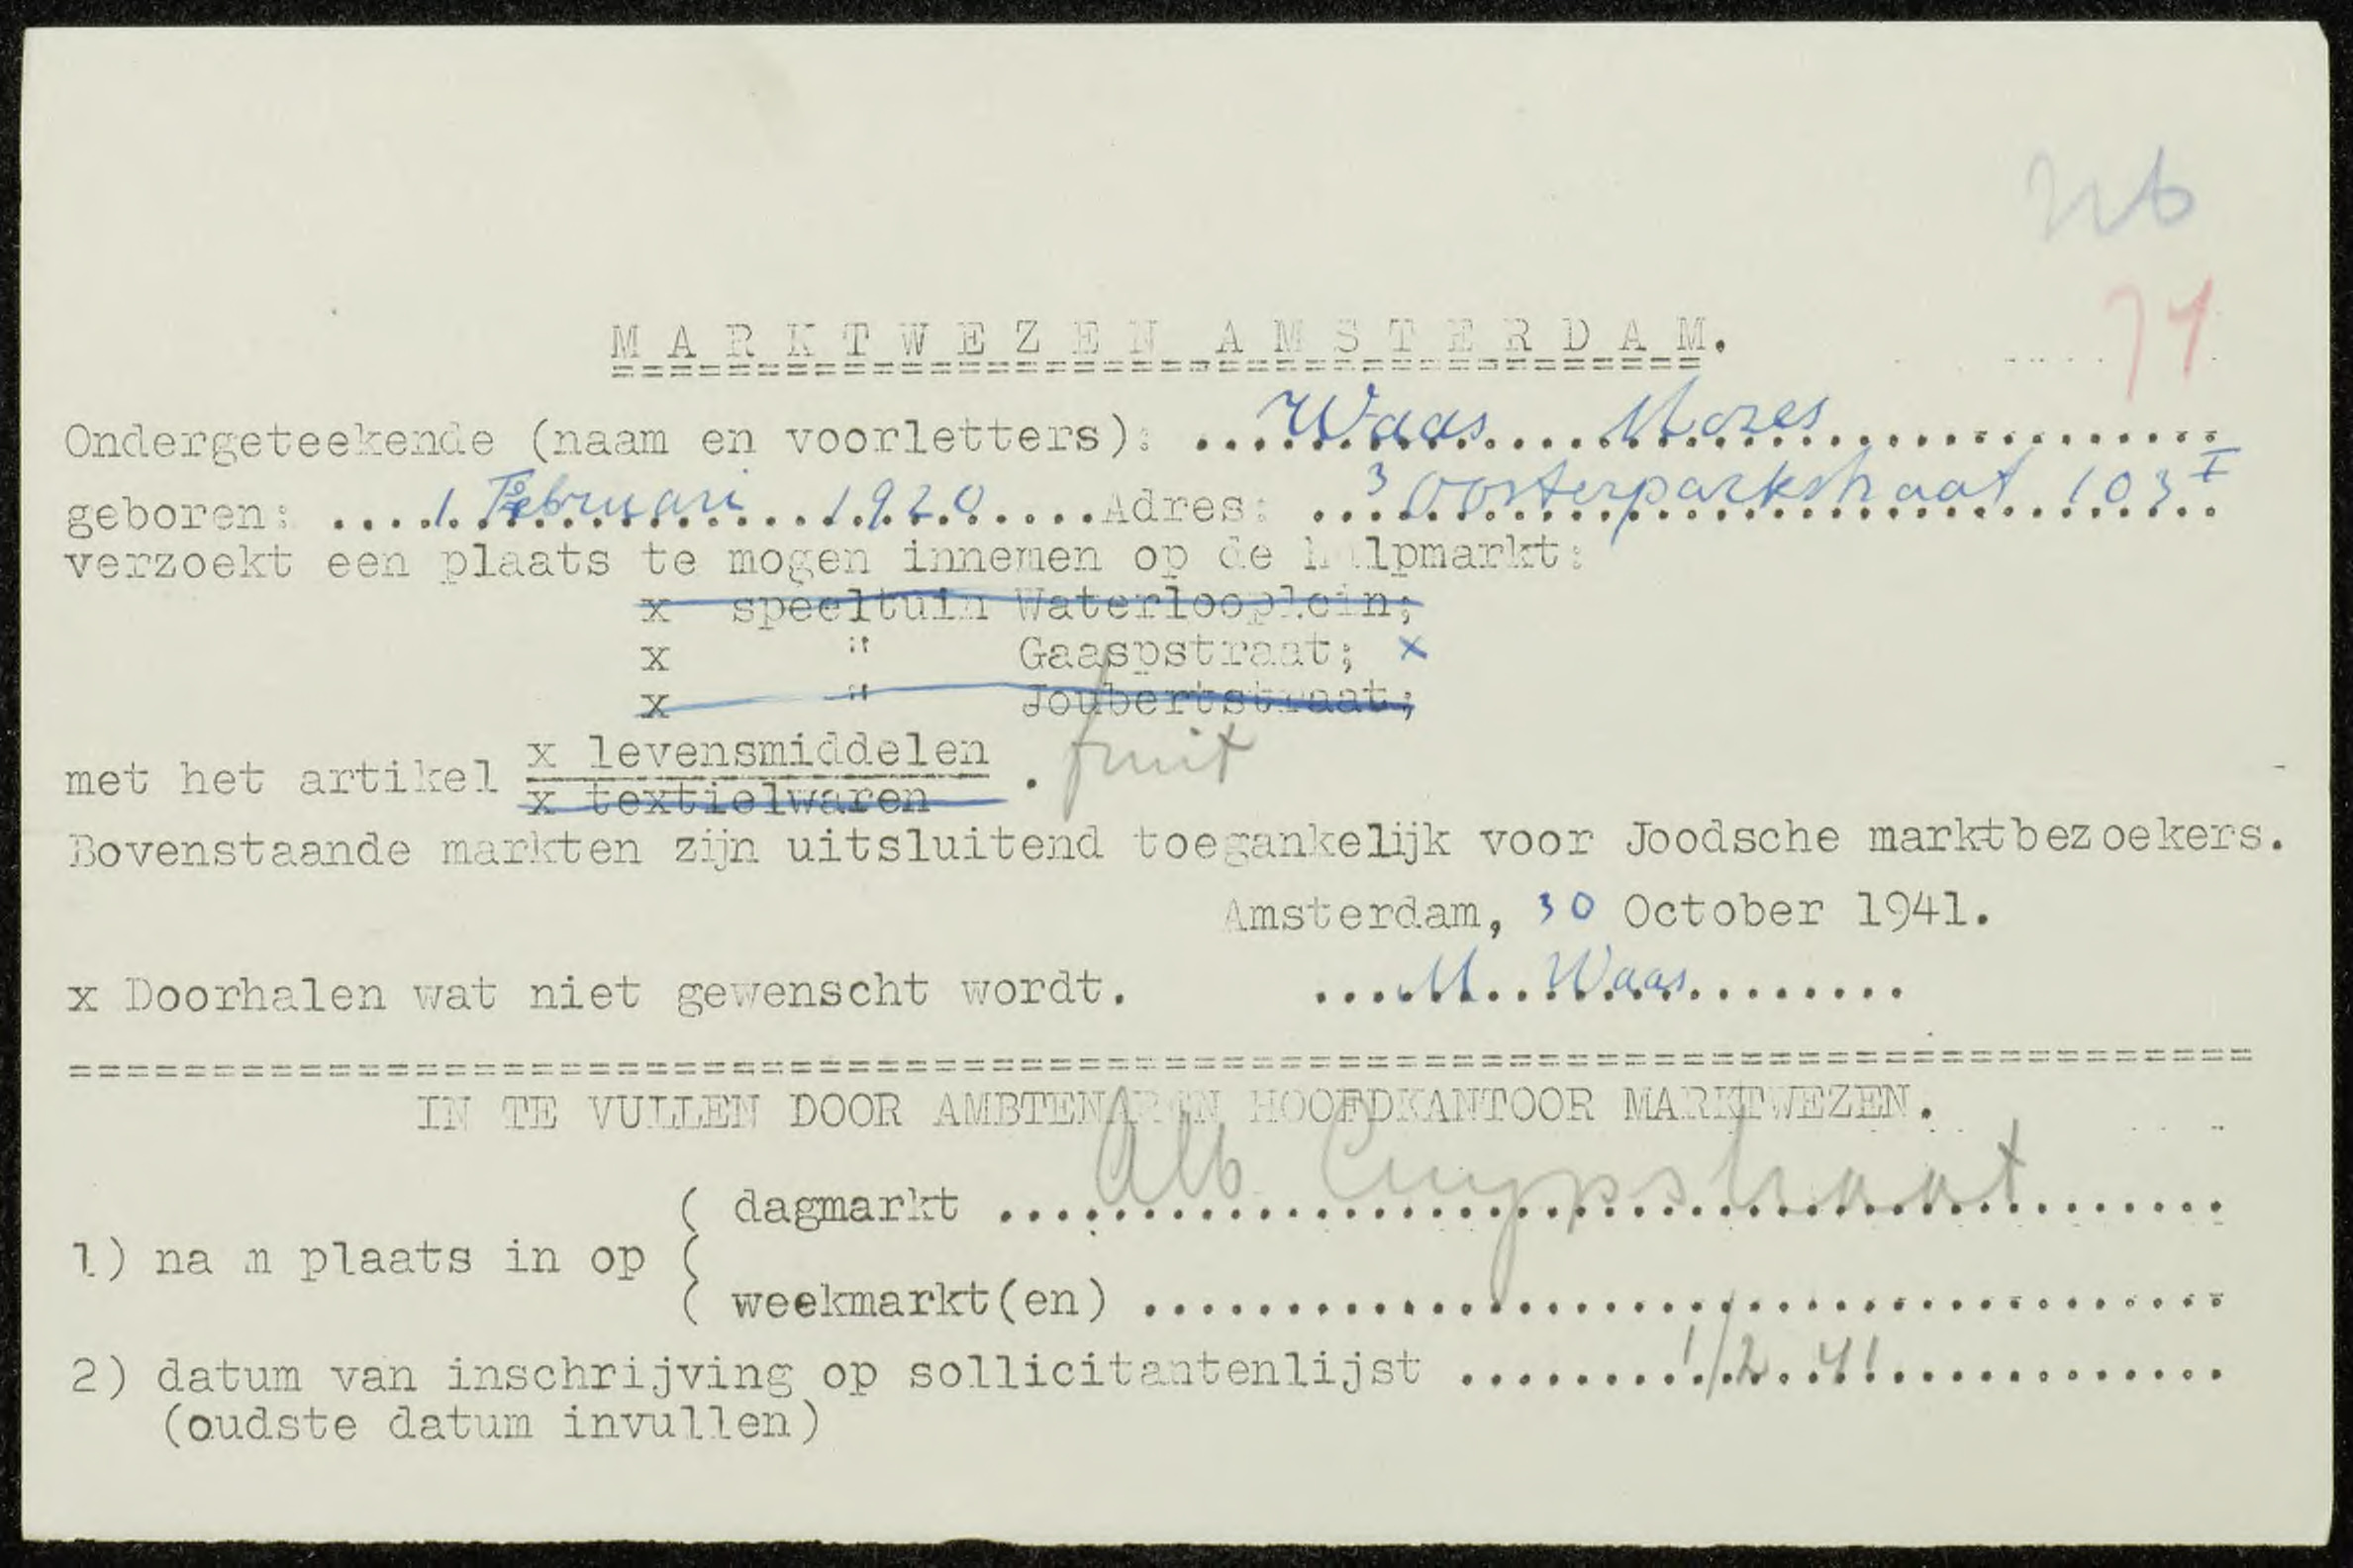 71
MARKTWEZEN AMSTERDAM.
Ondergeteekende (naam en voorletters): Waas Mozes
geboren: 1 Februari 1920 Adres: 3 Oosterparkstraat 103 I
verzoekt een plaats te mogen innemen op de hulpmarkt:
x speeltuin Waterlooplein;
x " Gaaspstraat; x
x " Joubertstraat;
met het artikel x levensmiddelen . fruit
x textielwaren
Bovenstaande markten zijn uitsluitend toegankelijk voor Joodsche marktbezoekers.
Amsterdam, 30 October 1941.
x Doorhalen wat niet gewenscht wordt. M. Waas
IN TE VULLEN DOOR AMBTENAREN HOOFDKANTOOR MARKTWEZEN.
( dagmarkt Alb Cuypstraat
1) na m plaats in op (
( weekmarkt(en)
2) datum van inschrijving op sollicitantenlijst 1/2 41
(oudste datum invullen)